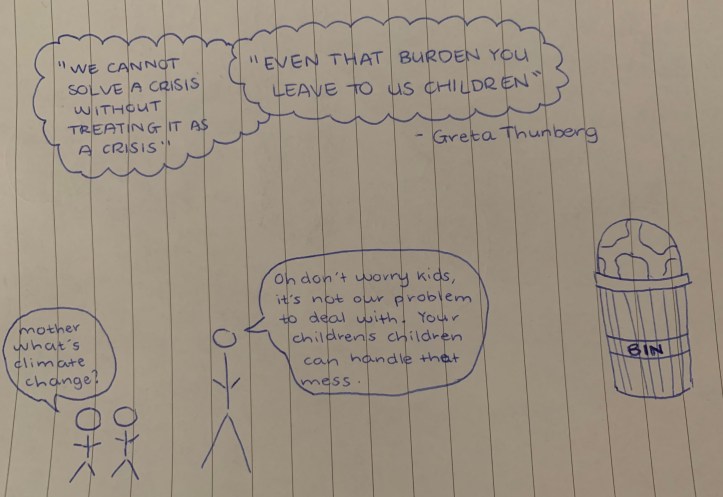 "WE CANNOT
SOLVE A CRISIS
WITHOUT
TREATING IT AS
A CRISIS"
"EVEN THAT BURDEN YOU
LEAVE TO US CHILDREN"
- Greta Thunberg
mother
what's
climate
change?
Oh don't worry kids,
it's not our problem
to deal with. Your
childrens children
can handle that
mess.
BIN